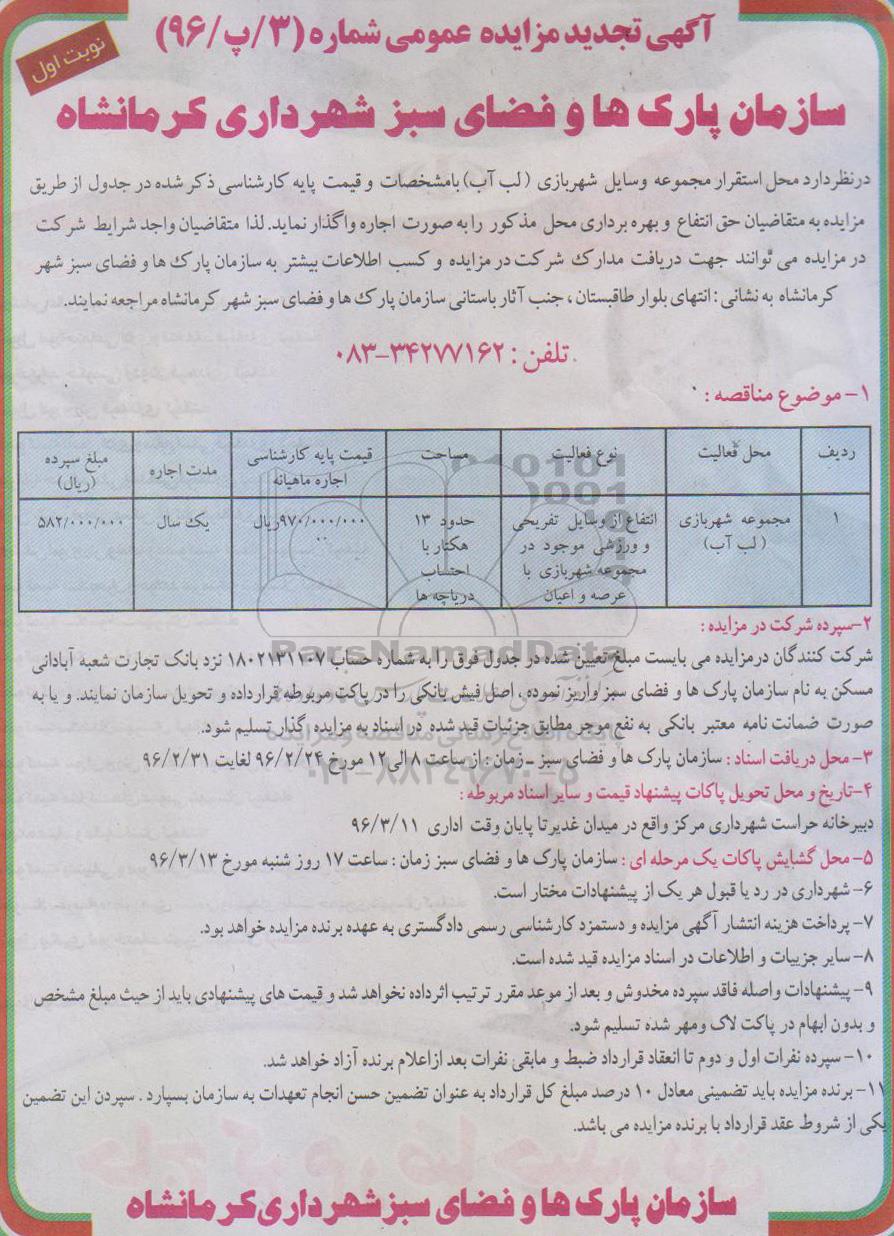 آگهی تجدید مزایده عمومی شماره (۳/پ/۹۶)
نوبت اول
سازمان پارک ها و فضای سبز شهرداری کرمانشاه
درنظردارد محل استقرار مجموعه وسایل شهربازی (لب آب) بامشخصات و قیمت پایه کارشناسی ذکر شده در جدول از طریق
مزایده به متقاضیان حق انتفاع و بهره برداری محل مذکور را به صورت اجاره واگذار نماید. لذا متقاضیان واجد شرایط شرکت
در مزایده می توانند جهت دریافت مدارک شرکت در مزایده و کسب اطلاعات بیشتر به سازمان پارک ها و فضای سبز شهر
کرمانشاه به نشانی : انتهای بلوار طاقبستان ، جنب آثار باستانی سازمان پارک ها و فضای سبز شهر کرمانشاه مراجعه نمایند.
تلفن : ۳۴۲۷۷۱۶۲-۰۸۳
۱- موضوع مناقصه :
ردیف
محل فعالیت
نوع فعالیت
مساحت
قیمت پایه کارشناسی
اجاره ماهیانه
مدت اجاره
مبلغ سپرده
(ریال)
۱
مجموعه شهربازی
(لب آب)
انتفاع از وسایل تفریحی
و ورزشی موجود در
مجموعه شهربازی با
عرصه و اعیان
حدود ۱۳
هکتار با
احتساب
دریاچه ها
۹۷۰/۰۰۰/۰۰۰ریال
یک سال
۵۸۲/۰۰۰/۰۰۰
۲-سپرده شرکت در مزایده :
شرکت کنندگان درمزایده می بایست مبلغ تعیین شده در جدول فوق را به شماره حساب ۱۸۰۲۱۳۱۱۰۷ نزد بانک تجارت شعبه آبادانی
مسکن به نام سازمان پارک ها و فضای سبز واریز نموده ، اصل فیش بانکی را در پاکت مربوطه قرارداده و تحویل سازمان نمایند. و یا به
صورت ضمانت نامه معتبر بانکی به نفع موجر مطابق جزئیات قید شده در اسناد به مزایده گذار تسلیم شود.
۳- محل دریافت اسناد : سازمان پارک ها و فضای سبز ـ زمان : از ساعت ۸ الی ۱۲ مورخ ۹۶/۲/۲۴ لغایت ۹۶/۲/۳۱
۴-تاریخ و محل تحویل پاکات پیشنهاد قیمت و سایر اسناد مربوطه :
دبیرخانه حراست شهرداری مرکز واقع در میدان غدیر تا پایان وقت اداری ۹۶/۳/۱۱
۵- محل گشایش پاکات یک مرحله ای : سازمان پارک ها و فضای سبز زمان : ساعت ۱۷ روز شنبه مورخ ۹۶/۳/۱۳
۶- شهرداری در رد یا قبول هر یک از پیشنهادات مختار است.
۷- پرداخت هزینه انتشار آگهی مزایده و دستمزد کارشناسی رسمی دادگستری به عهده برنده مزایده خواهد بود.
۸- سایر جزییات و اطلاعات در اسناد مزایده قید شده است.
۹- پیشنهادات واصله فاقد سپرده مخدوش و بعد از موعد مقرر ترتیب اثرداده نخواهد شد و قیمت های پیشنهادی باید از حیث مبلغ مشخص
و بدون ابهام در پاکت لاک ومهر شده تسلیم شود.
۱۰- سپرده نفرات اول و دوم تا انعقاد قرارداد ضبط و مابقی نفرات بعد ازاعلام برنده آزاد خواهد شد.
۱۱- برنده مزایده باید تضمینی معادل ۱۰ درصد مبلغ کل قرارداد به عنوان تضمین حسن انجام تعهدات به سازمان بسپارد . سپردن این تضمین
یکی از شروط عقد قرارداد با برنده مزایده می باشد.
سازمان پارک ها و فضای سبز شهرداری کرمانشاه
ParsNamadData
۰۲۱-۸۸۳۴۹۶۷۰-۵